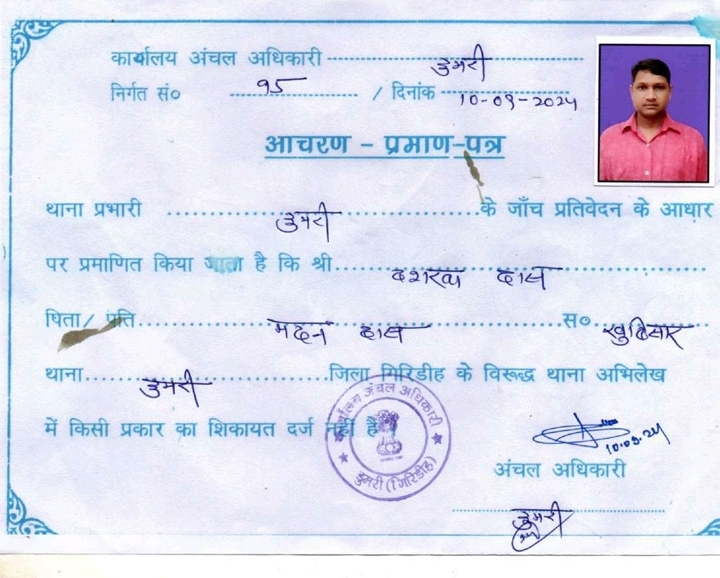 कार्यालय अंचल अधिकारी डुमरी
निर्गत सं० 95 / दिनांक 10-09-2024
आचरण - प्रमाण-पत्र
थाना प्रभारी डुमरी के जाँच प्रतिवेदन के आधार
पर प्रमाणित किया जाता है कि श्री दशरथ दास
पिता/ पति मदन दास स०
थाना डुमरी जिला गिरिडीह के विरूद्ध थाना अभिलेख
में किसी प्रकार का शिकायत दर्ज नहीं है
कार्यालय अंचल अधिकारी
डुमरी (गिरिडीह)
10.09.24
अंचल अधिकारी
डुमरी